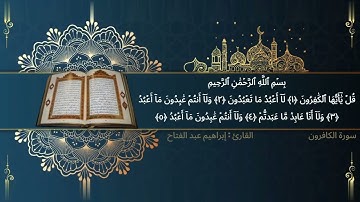 بِسْمِ ٱللَّهِ ٱلرَّحْمَٰنِ ٱلرَّحِيمِ
قُلْ يَٰٓأَيُّهَا ٱلْكَٰفِرُونَ ﴿١﴾ لَآ أَعْبُدُ مَا تَعْبُدُونَ ﴿٢﴾ وَلَآ أَنتُمْ عَٰبِدُونَ مَآ أَعْبُدُ
﴿٣﴾ وَلَآ أَنَا۠ عَابِدٌ مَّا عَبَدتُّمْ ﴿٤﴾ وَلَآ أَنتُمْ عَٰبِدُونَ مَآ أَعْبُدُ ﴿٥﴾
سورة الكافرون
القارئ : إبراهيم عبد الفتاح